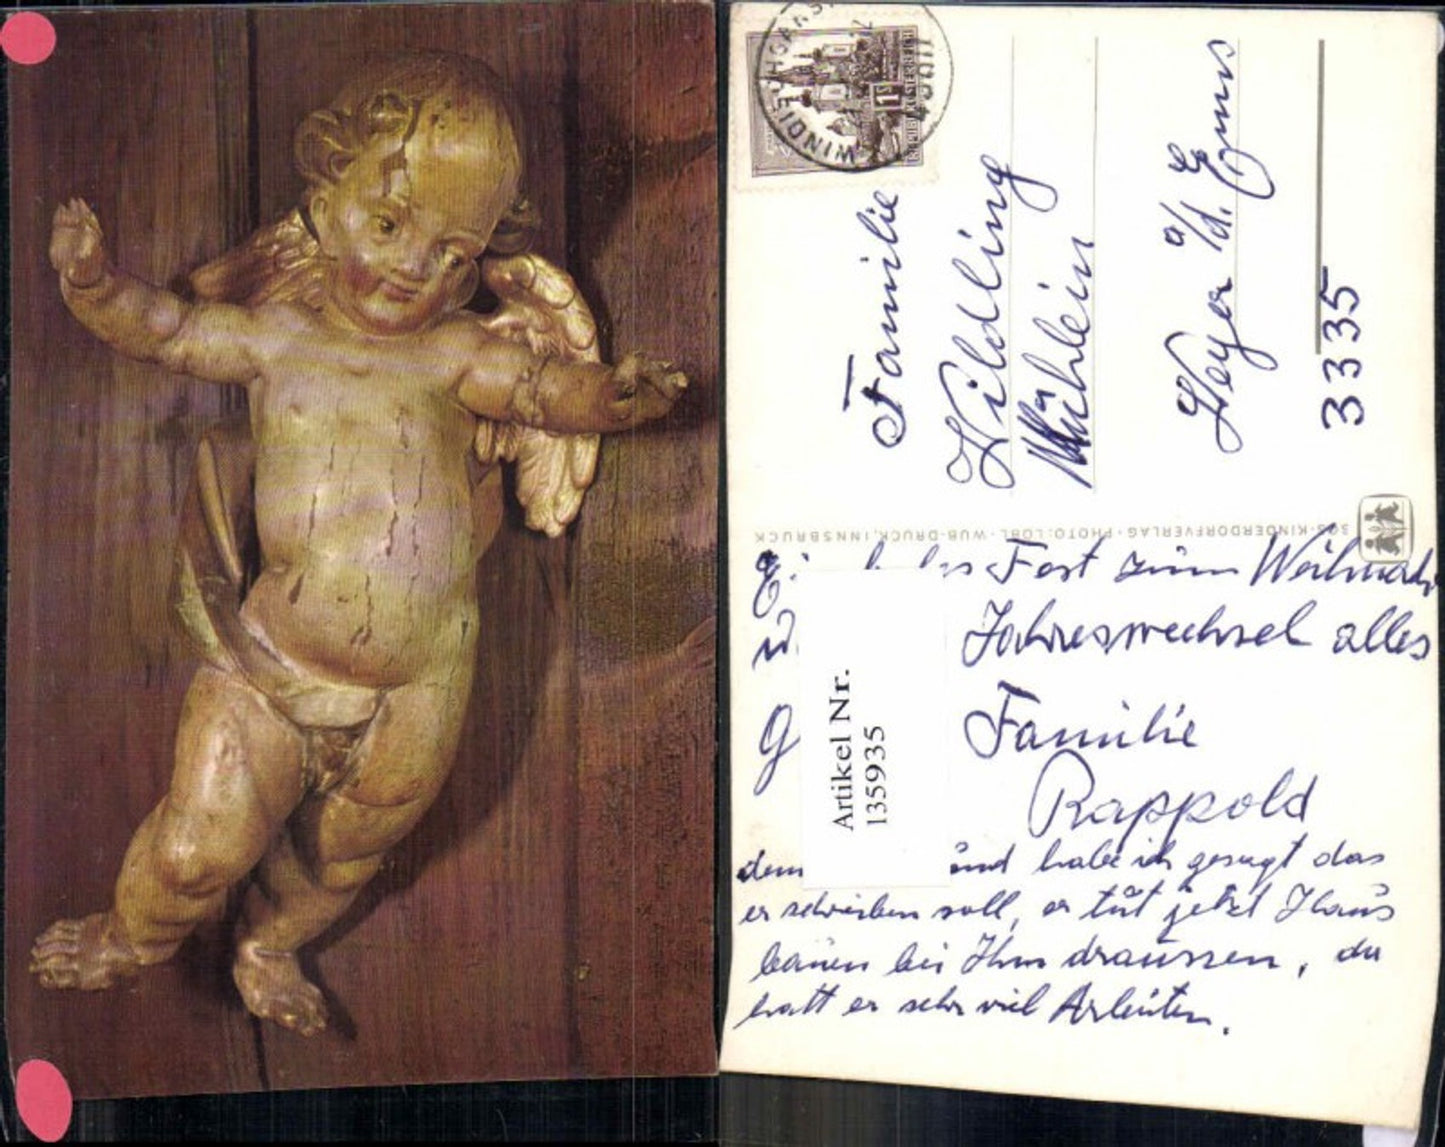 WINDISCHGARSTEN
4580
1S
REPUBLIK ÖSTERREICH
Familie
Hildling
Mühlein
Weyer a/d. Enns
3335
SOS-KINDERDORFVERLAG · PHOTO: LÖBL · WUB-DRUCK, INNSBRUCK
Fest zum Weihnacht
Jahreswechsel alles
G
Familie
Rappold
Artikel Nr.
135935
dem und habe ich gesagt das
er schreiben soll, er tut jetzt Haus
bauen bei Ihm draussen, da
hatt er sehr viel Arbeiten.